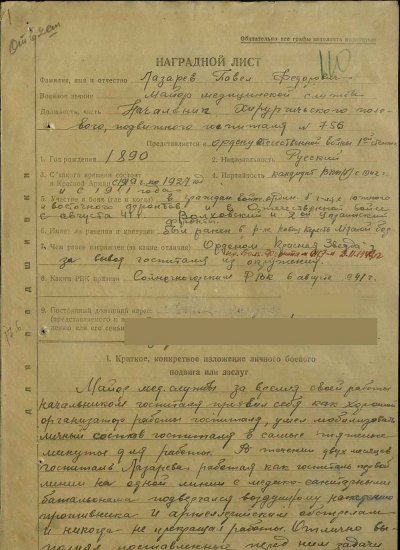 Обязательно все графы заполнять надлежаще
110
НАГРАДНОЙ ЛИСТ
Фамилия, имя и отчество Лазарев Павел Федорович
Военное звание майор медицинской службы
Должность, часть Начальник Хирургического поле-
вого, подвижного госпиталя № 755
Представляется к ордену Отечественной войны 1ой степени
1. Год рождения 1890 2. Национальность Русский
3. С какого времени состоит
в Красной Армии с 1919 г. по 1927 год 4. Партийность кандидат ВКП(б) с 1942 г.
и с 1941 года
5. Участие в боях (где и когда) в гражданской войне на южном
и восточном фронтах и в Отечественной войне
с августа 41 г. Волховский и 2ой Украинский
фронт.
6. Имеет ли ранения и контузии Был ранен в
7. Чем ранее награжден (за какие отличия) Орденом Красная Звезда
за вывод госпиталя из окружения.
8. Каким РВК призван Солнечногорским РВК 6 августа 1941 г.
9. Постоянный домашний адрес:
(представляемого к
дению или его семьи
I. Краткое, конкретное изложение личного боевого
подвига или заслуг
Майор мед. службы за время своей работы
начальником госпиталя проявил себя как хороший
организатор работы госпиталя, умел мобилизовать
личный состав госпиталя в самые тяжелые
минуты для работы. В течении двух месяцев
госпиталь Лазарева работал как госпиталь первой
линии на одной линии с медико-санитарными
батальонами подвергался воздушному нападению
противника и артиллерийским обстрелам
и никогда не прекращал работы. Отлично вы-
полнял поставленные перед ним задачи